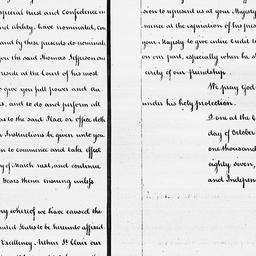 special trust and confidence in
and ability, have nominated, con
and by these presents do nominate
you the said Thomas Jefferson our
reside at the Court of his most
to give you full power and au
, and to do and perform all
as to the said Place or office doth
Instructions be given unto you
on to commence and take effect
y of March next, and continue
Years thence ensuing unless
ny whereof we have caused the
United States to be hereunto affixed.
Excellency Arthur St. Clair our
sion to represent us at your Majesty
mence at the expiration of his pres
your Majesty to give entire credit to
on our part, especially when he s
cerity of our friendship.
We pray God
under his holy protection.
Done at the C
day of October
one thousand
eighty seven,
and Indepen